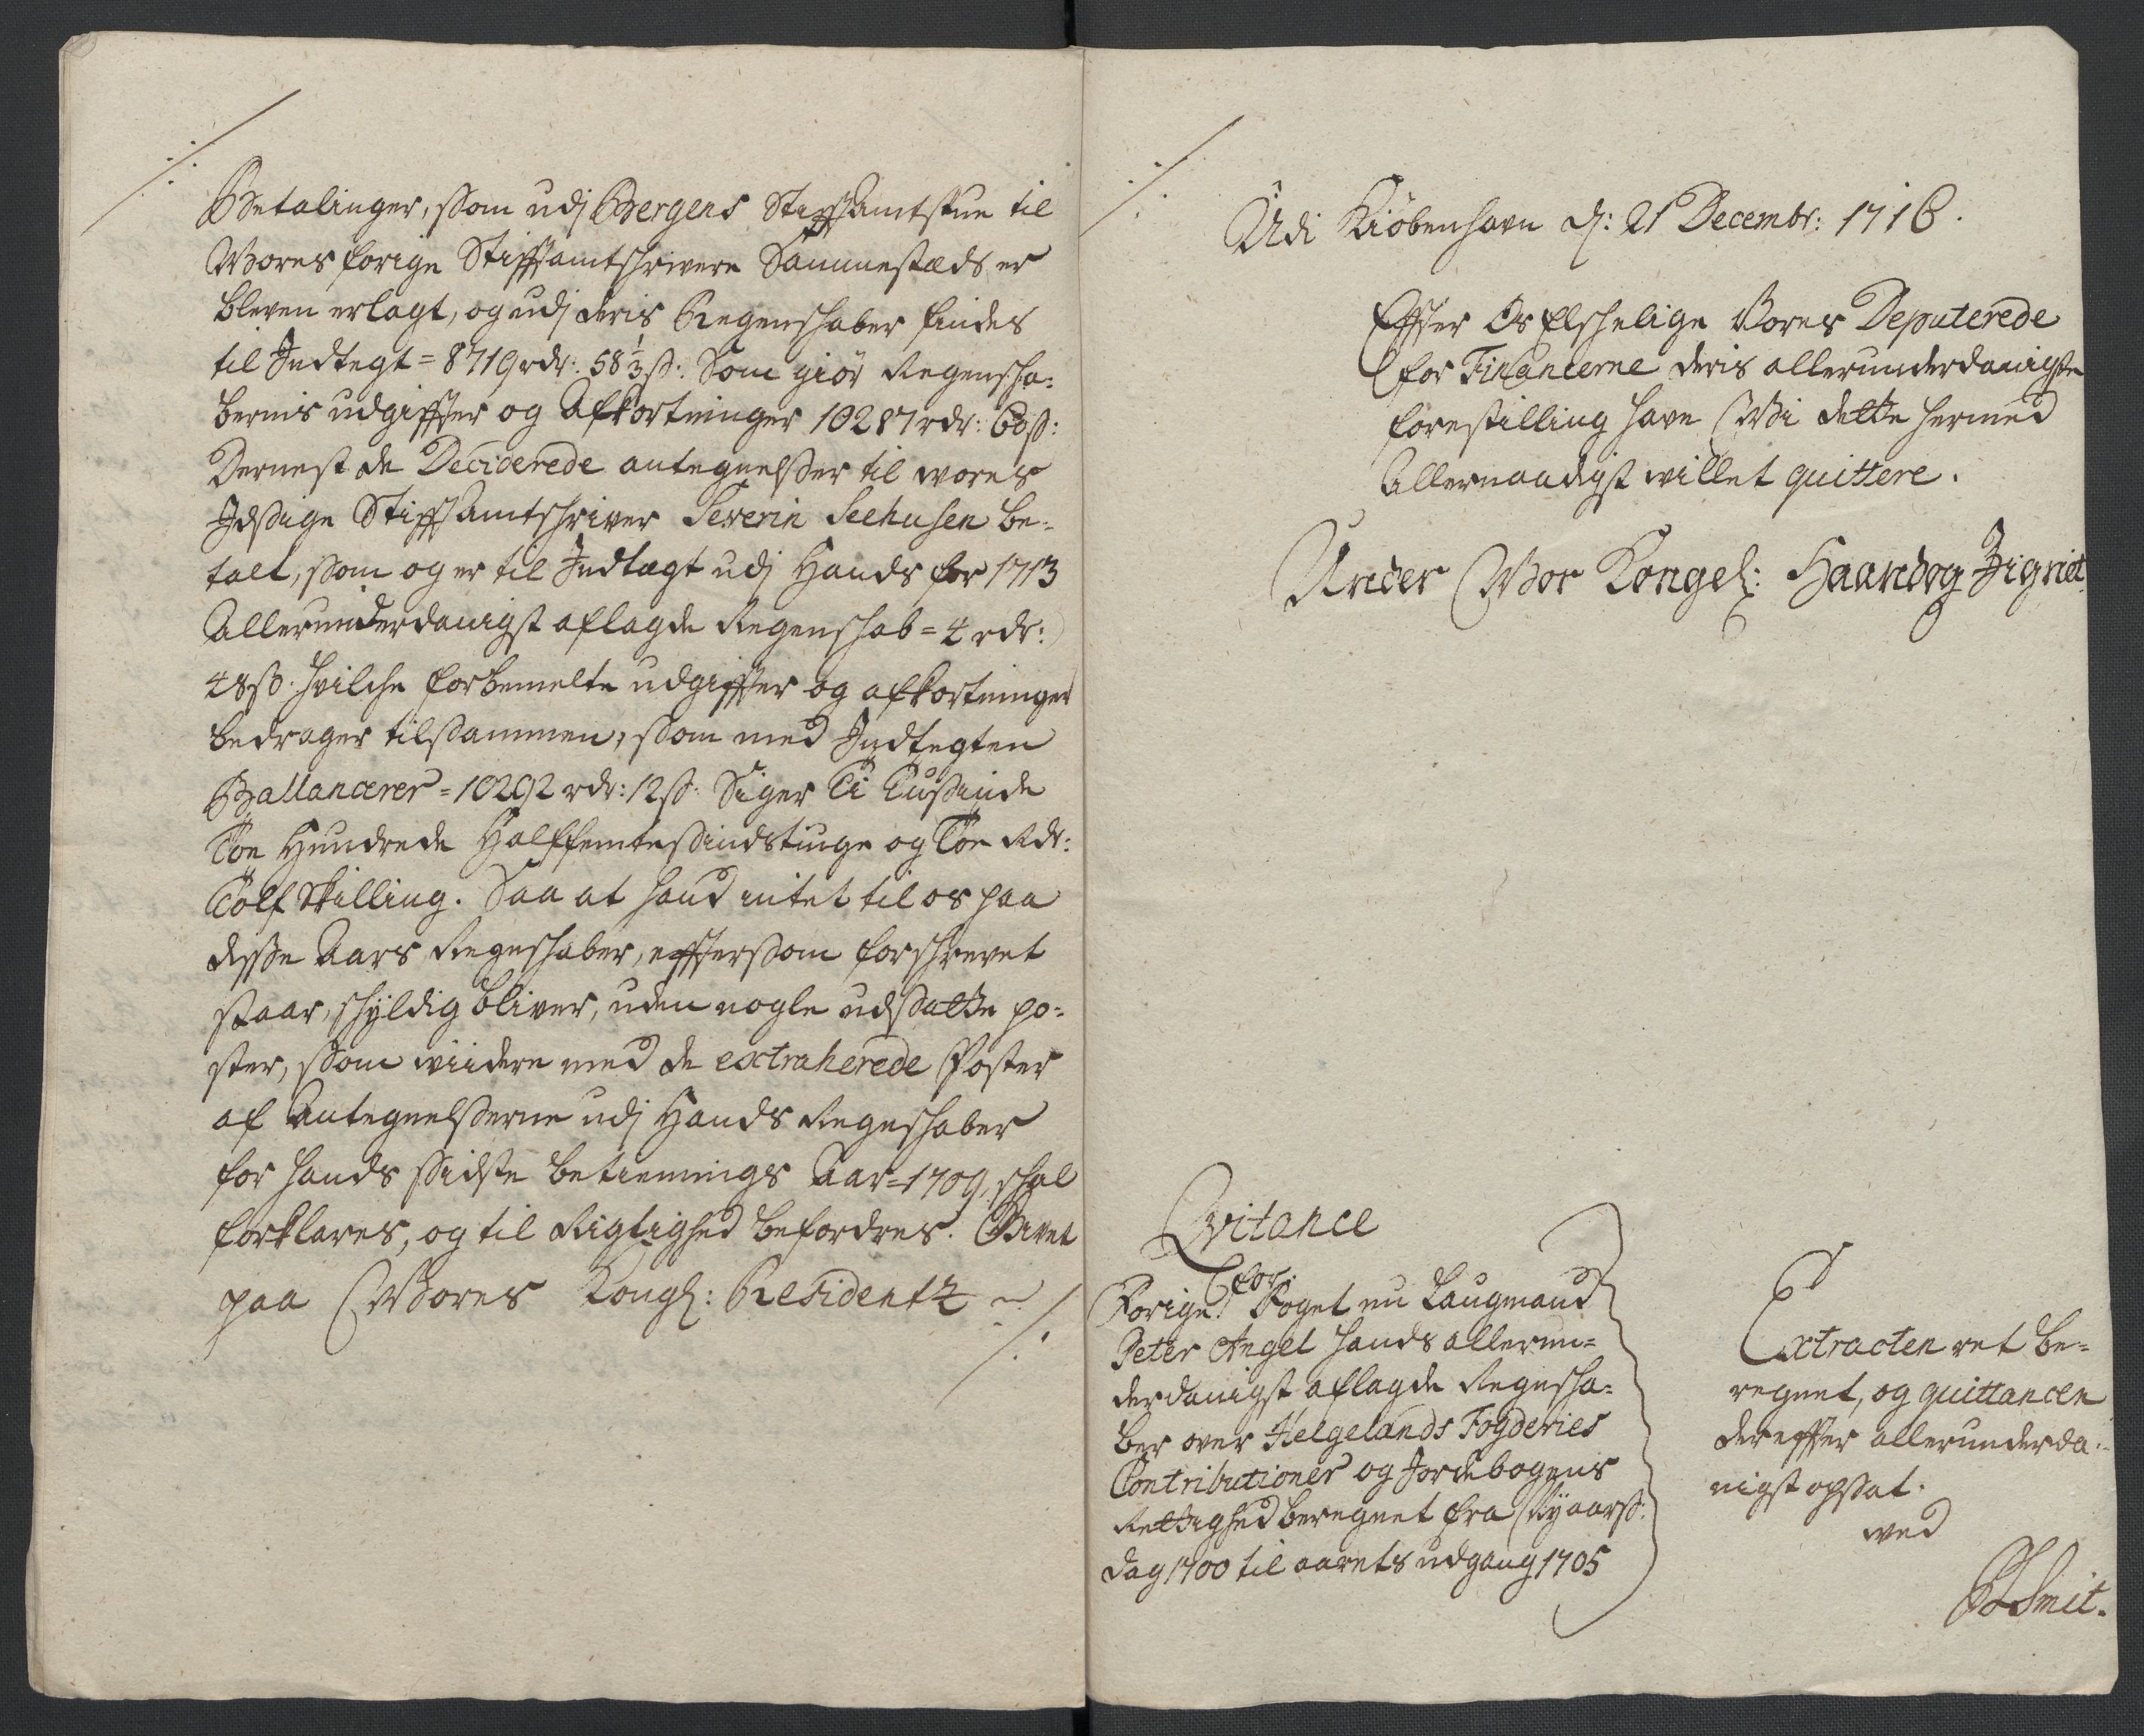 Betalinger, som udj Bergens Stiffts Amtstue til
Wores forige Stifftamtschrivere Sammestæds er
bleven erlagt, og udj deris Regenschaber findes
til Indtegt = 8719 rdr: 58 1/3 ß: Som giør Regenscha-
bernis udgiffter og Afkortninger 10287 rdr: 60 ß:
Dernest de Deciderede antegnelßer til wores
Jdßige Stifft Amtschriver Severin Seehusen be-
talt, som og er til Indtægt udj Hands for 1713
Allerunderdanigst aflagde Regenschab = 4 rdr:
48 ß. hvilche forbemelte udgiffter og afkortninger
bedrager tilsammen, som med Indtegten
Ballancerer = 10292 rdr: 12 ß: Siger Ti Tußinde
Toe Hundrede Halffemtesindstiuge og Toe Rdr:
Tolf Skilling. Saa at hand intet til os paa
disße Aars Regnschaber, efftersom forschrevet
staar, schyldig bliver, uden nogle udsatte po-
ster, som wiidere med de extraherede Poster
af Antegnelßerne udj Hands Regnschaber
for hands sidste betiennings Aar = 1709, schal
forklares, og til Rigtighed befordres. Givet
paa Wores Kongl: Residentz
Udi Kiøbenhavn d: 21 Decembr: 1716.
Effter Os Elschelige Vores Deputerede
for Financerne deris allerunderdanigste
forestilling have Wi dette hermed
Allernaadigst willet quittere.
Under Wor Kongel: Haand og Zignet.
Qvitance
for
Forige Foget nu Laugmand
Peter Angel hands allerun-
derdanigst aflagde Regnscha-
ber over Helgelands Fogderies
Contributioner og Jordebogens
Rettighed beregnet fra Nyaarß:
dag 1700 til aarets udgang 1705
Extracten ret be-
regnet, og quittancen
dereffter allerunderda-
nigst opsat.
wed
Smit.